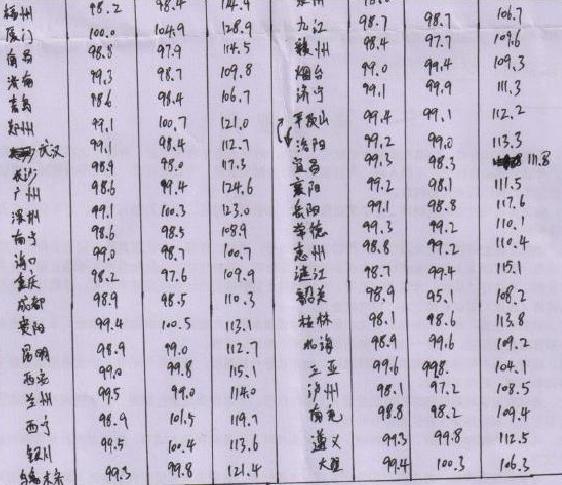 福州 98.2 98.4 114.9 泉州
厦门 100.0 104.9 128.9 九江 98.7 98.7 106.7
南昌 98.8 97.9 114.5 赣州 98.4 97.7 109.6
济南 99.3 98.7 109.8 烟台 99.0 99.4 109.3
青岛 98.6 98.4 106.7 济宁 99.1 99.9 111.3
郑州 99.1 100.7 121.0 平顶山 99.4 99.1 112.2
武汉 99.1 98.4 112.7 洛阳 99.2 99.0 113.3
长沙 98.9 98.0 117.3 宜昌 99.3 98.3 111.8
广州 98.6 99.4 124.6 襄阳 99.2 98.1 111.5
深圳 99.1 100.3 123.0 岳阳 99.1 98.8 117.6
南宁 98.6 98.5 108.9 常德 99.3 99.2 110.1
海口 99.0 98.7 100.7 惠州 98.8 99.2 110.4
重庆 98.2 97.6 109.9 湛江 98.7 99.4 115.1
成都 98.9 98.5 110.3 韶关 98.9 95.1 108.2
贵阳 99.4 100.5 113.1 桂林 98.1 98.6 113.8
昆明 98.9 99.0 112.7 北海 98.9 99.6 109.2
西安 99.0 99.8 115.1 三亚 99.6 104.1
兰州 99.5 99.0 114.0 泸州 98.1 97.2 108.5
西宁 98.9 101.5 119.7 南充 98.8 98.2 109.4
银川 99.5 100.4 113.6 遵义 99.3 99.8 112.5
乌鲁木齐 99.3 99.8 121.4 大理 99.4 100.3 106.3